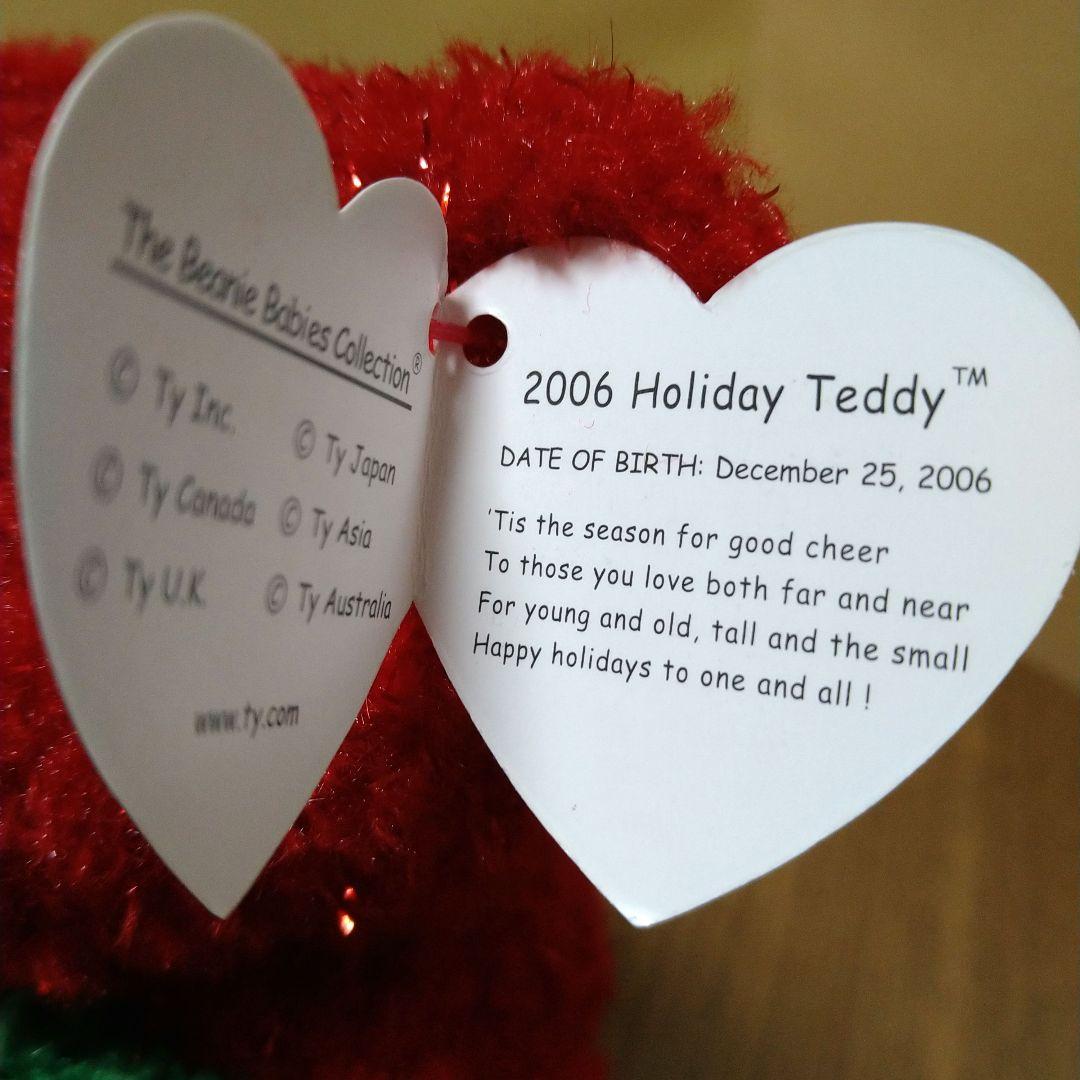 The Beanie Babies Collection®
© Ty Inc.
© Ty Canada
© Ty U.K.
© Ty Japan
© Ty Asia
© Ty Australia
www.ty.com
2006 Holiday Teddy™
DATE OF BIRTH: December 25, 2006
'Tis the season for good cheer
To those you love both far and near
For young and old, tall and the small
Happy holidays to one and all !